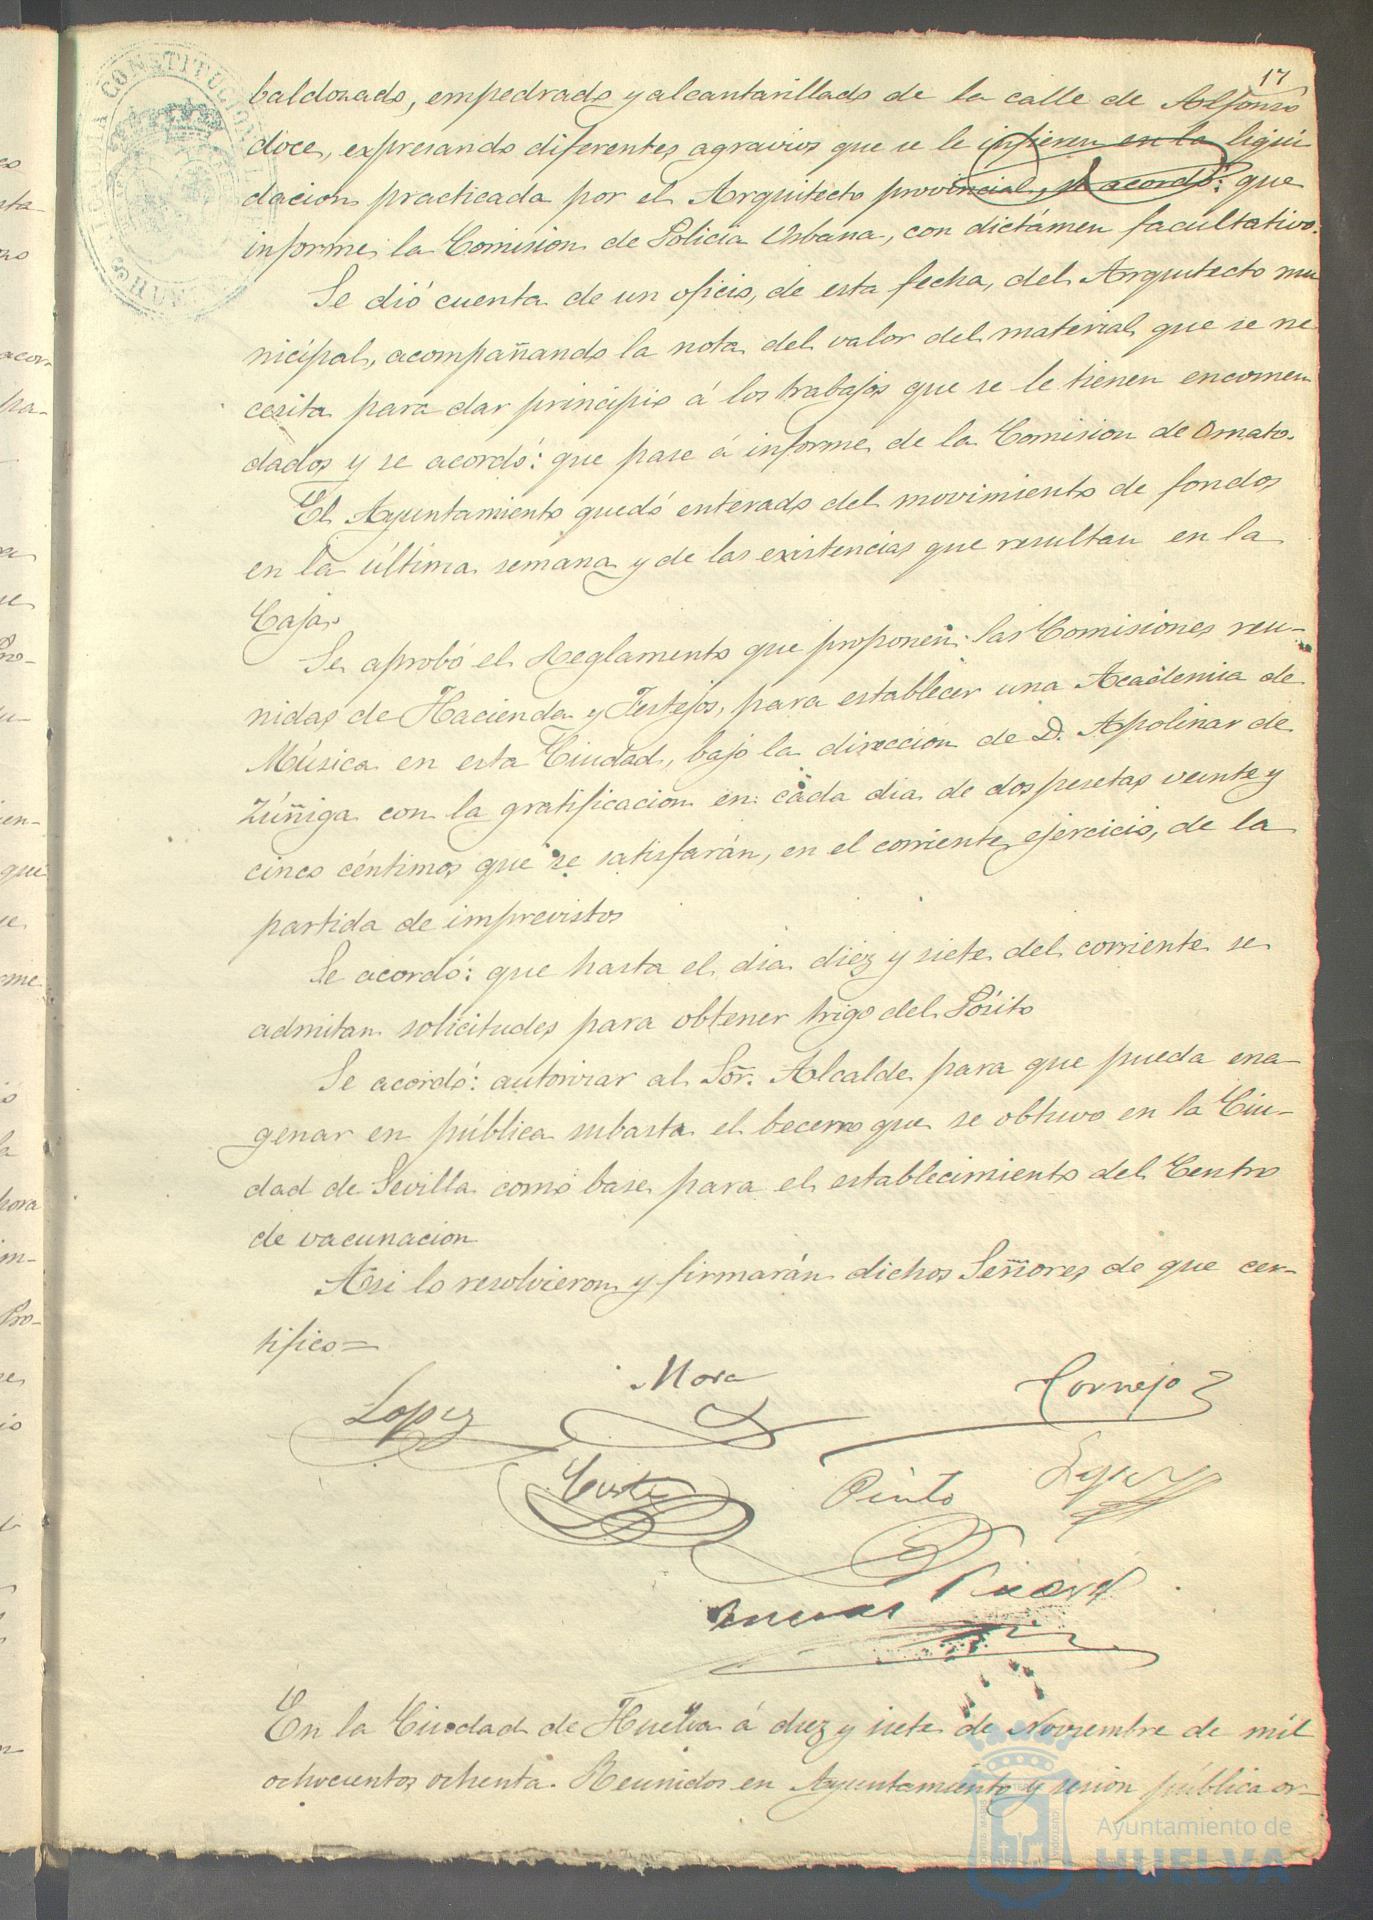 17
baldosado, empedrado y alcantarillado de la calle de Alfonso
doce, expresando diferentes agravios que se le infieren en la liqui
dacion practicada por el Arquitecto provincial, se acordó: que
informe la Comision de Policia Urbana, con dictámen facultativo.
Se dió cuenta de un oficio, de esta fecha, del Arquitecto mu
nicipal, acompañando la nota del valor del material que se ne
cesita para dar principio á los trabajos que se le tienen encomen
dados y se acordó: que pase á informe de la Comision de Ornato.
El Ayuntamiento quedó enterado del movimiento de fondos
en la última semana y de las existencias que resultan en la
Caja.
Se aprobó el Reglamento que proponen las Comisiones reu-
nidas de Hacienda y Festejos, para establecer una Academia de
Música en esta Ciudad, bajo la direccion de D. Apolinar de
Zúñiga con la gratificacion en cada dia de dos pesetas veinte y
cinco céntimos que se satisfarán, en el corriente ejercicio, de la
partida de imprevistos
Se acordó: que hasta el dia diez y siete del corriente se
admitan solicitudes para obtener trigo del Pósito
Se acordó: autorizar al Sor. Alcalde para que pueda ena-
genar en pública subasta el becerro que se obtuvo en la Ciu-
dad de Sevilla como base para el establecimiento del Centro
de vacunacion
Asi lo resolvieron y firmarán dichos Señores de que cer-
tifico=
Mora
Cornejo
Lopez
Pinto
Lopez
En la Ciudad de Huelva á diez y siete de Noviembre de mil
ochocientos ochenta. Reunidos en Ayuntamiento y sesion pública or-
Ayuntamiento de
HUELVA